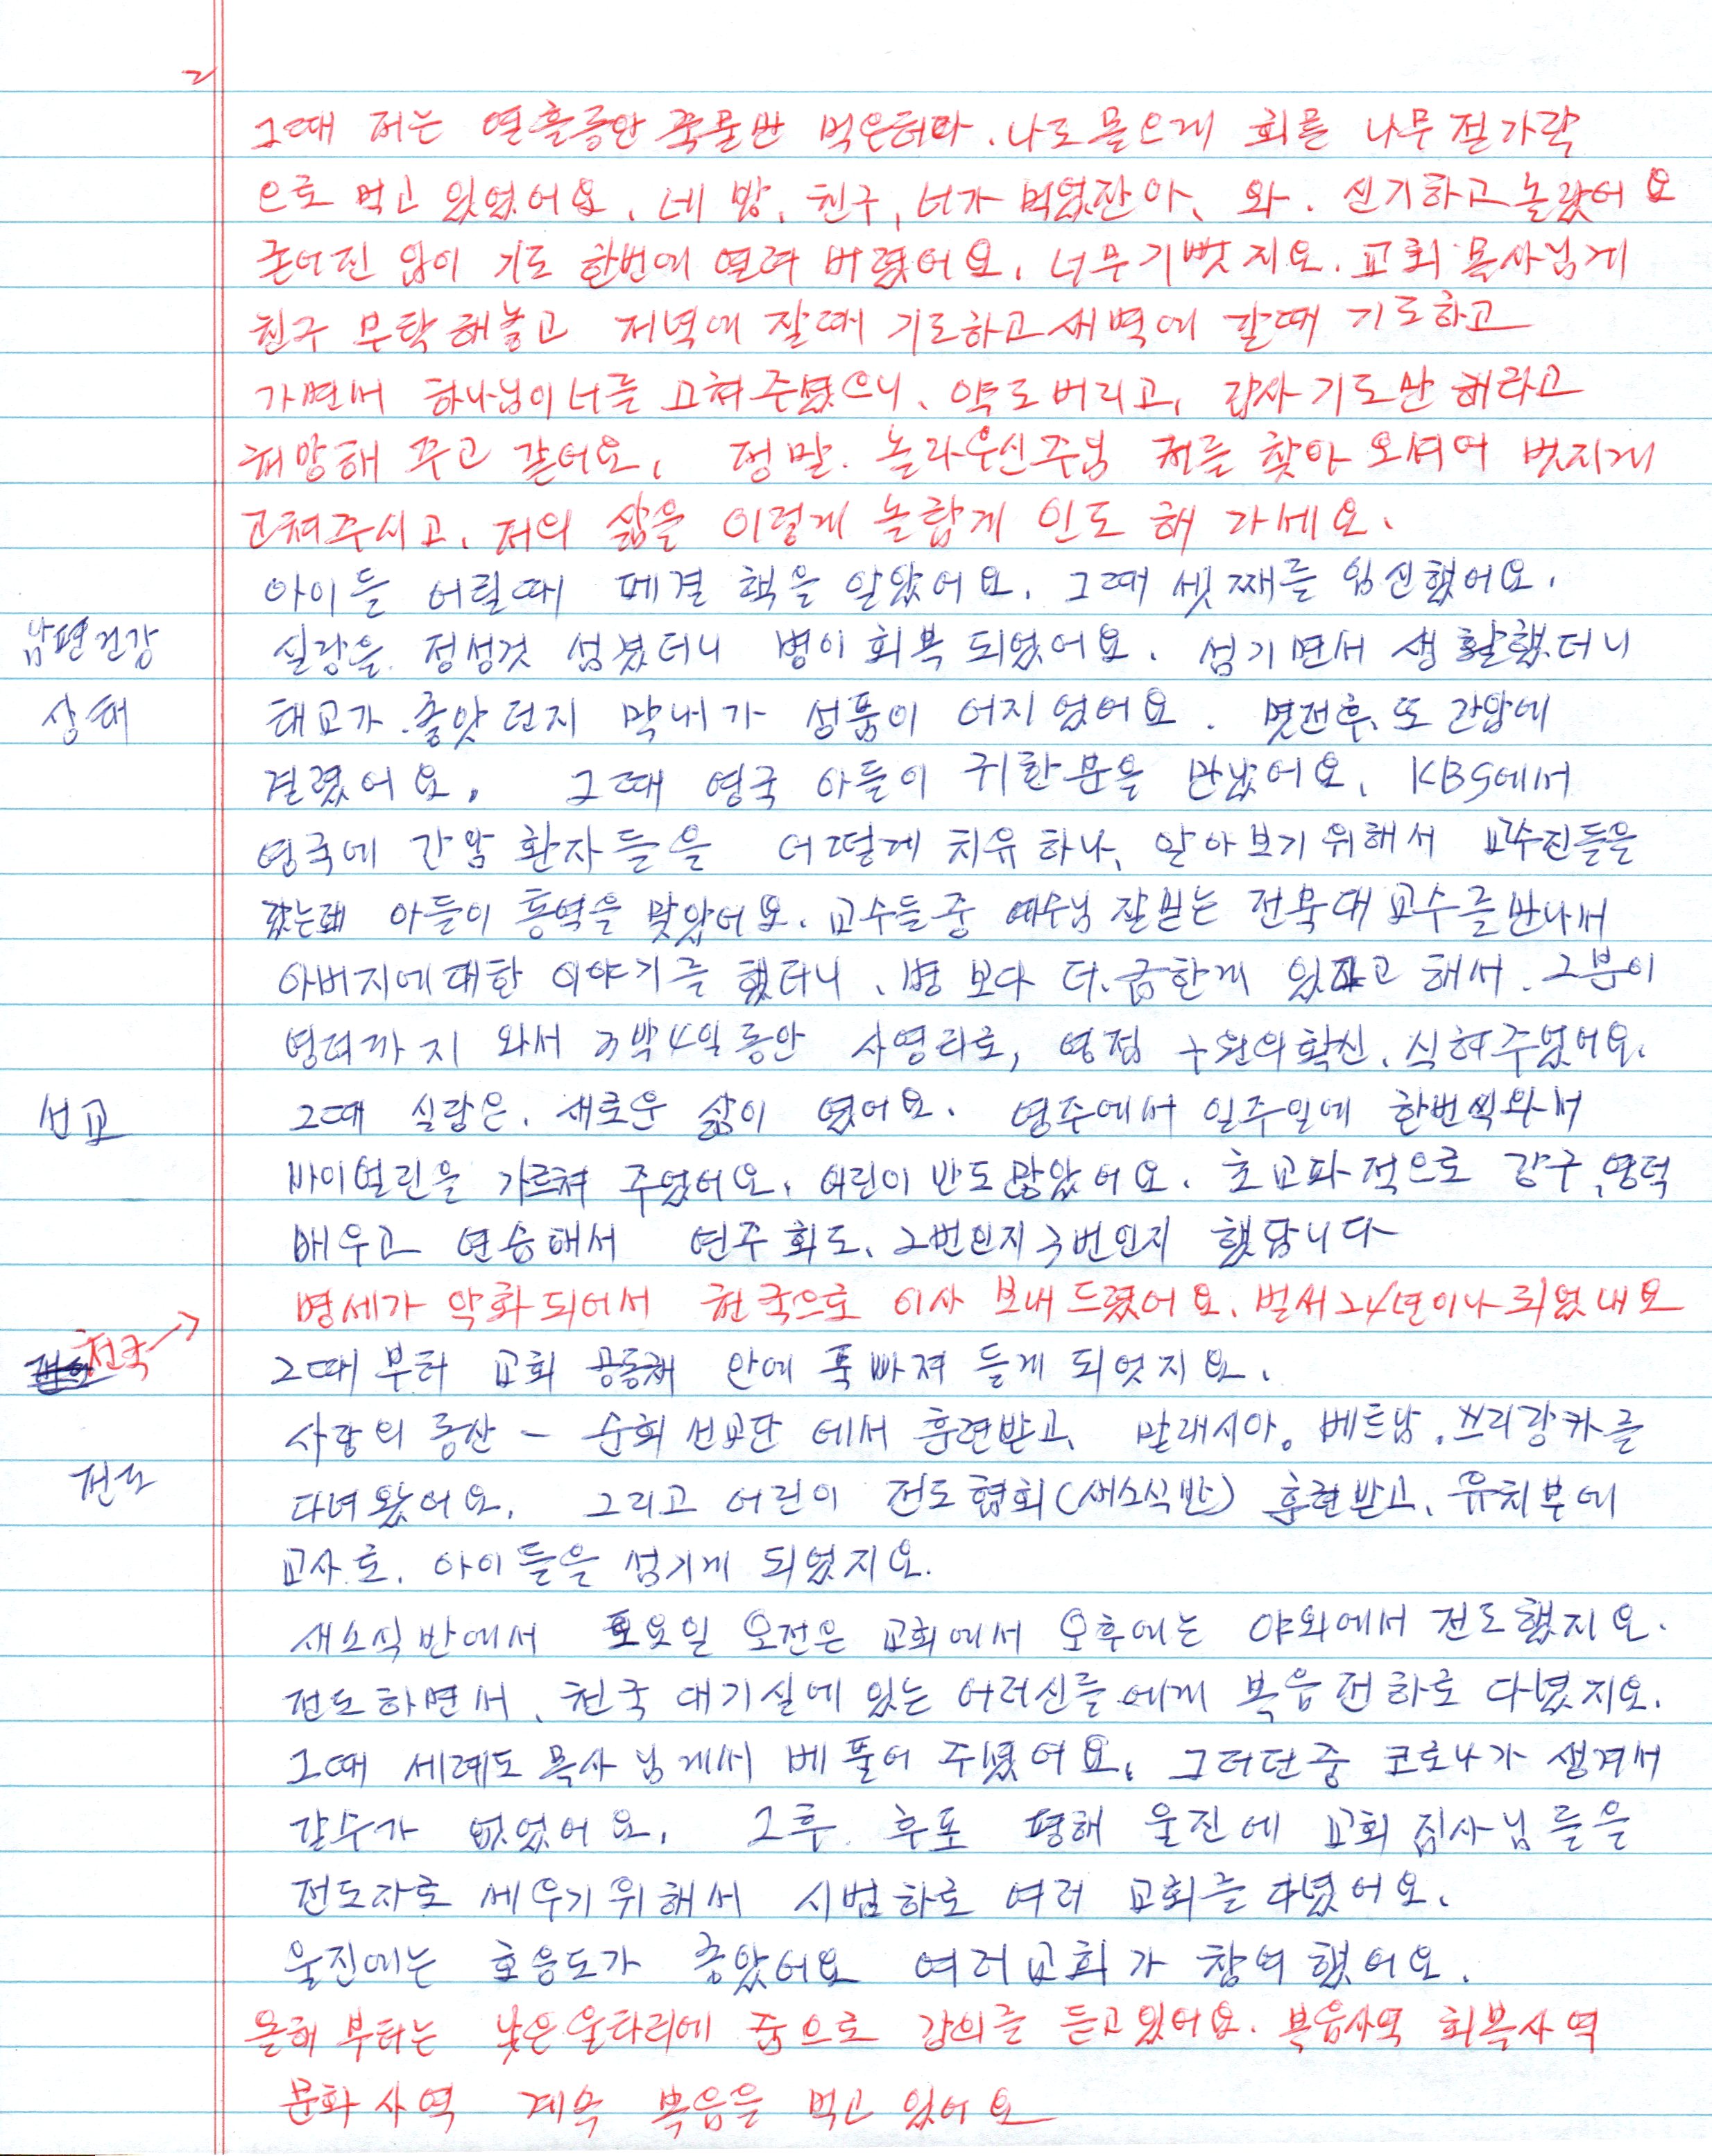 2
그때 저는 열흘동안 죽물만 먹은터라. 나도 몰으게 회를 나무 젓가락
으로 먹고 있었어요. 네 방. 친구, 너가 먹었잔아. 와. 신기하고 놀랐어요
굳어진 입이 기도 한번에 열려 버렸어요. 너무 기뻣지요. 교회 목사님게
친구 부탁해놓고 저녁에 잘때 기도하고 새벽에 갈때 기도하고
가면서 하나님이 너를 고쳐 주셨으니. 약도 버리고, 감사 기도만 해라고
해 주고 같어요. 정말. 놀라우신주님 저를 찾아 오셔어 벗지게
고쳐주시고. 저의 삶을 이렇게 놀랍게 인도 해 가세요.
아이들 어릴때 페결핵을 알았어요. 그때 셋째를 임신했어요.
남편건강 실랑을. 정성것 섬겼더니 병이 회복 되었어요. 섬기면서 생활했더니
상태 태교가 좋앗던지 막내가 성품이 어지 었어요. 몃년후, 또 간암에
걸렸어요. 그때 영국 아들이 귀한 분을 만났어요. KBS에서
영국에 간암 환자들을 어떻게 치유하나, 알아보기 위해서 교수진들을
갔는데 아들이 통역을 맞았어요. 교수들중 예수님 잘믿는 전북대 교수를 만나서
아버지에대한 이야기를 했더니. 병 보다 더.급한게 있다고 해서. 그분이
영덕까지 와서 3박4일동안 사영리로, 영접 구원의확신. 식혀주었어요.
선교 그때 실랑은. 새로운 삶이 였어요. 영주에서 일주일에 한번씩와서
바이얼린을 가르쳐 주었어요. 어린이 반도 많았어요. 초교파적으로 강구,영덕
배우고 연습해서 연주회도. 2번인지 3번인지 했답니다
병세가 악화 되어서 천국으로 이사 보내 드렸어요. 벌써 24년이나 되었내요
천국→ 그때부터 교회 공동체 안에 푹빠져 들게 되엇지요.
사랑의 동산 - 순회 선교단 에서 훈련받고, 말래시아. 베트남. 쓰리랑카를
전도 다녀왔어요. 그리고 어린이 전도 협회(새소식반) 훈련받고, 유치부에
교사로. 아이들을 섬기게 되었지요.
새소식반에서 토요일 오전은 교회에서 오후에는 야외에서 전도했지요.
전도하면서. 천국 대기실에 있는 어러신들에게 복음전하로 다녔지요.
그때 세례도 목사님게서 베풀어 주셨어요. 그러던중 코로나가 생겨서
갈수가 없었어요. 그후. 후포 평해 울진에 교회 집사님들을
전도자로 세우기위해서 시범하로 여러 교회를 다녔어요.
울진에는 호응도가 좋았어요 여러교회가 참여했어요.
올해 부터는 낮은울타리에 줌으로 강의를 듣고있어요. 복음사역 회복사역
문화사역 계속 복음을 먹고 있어요